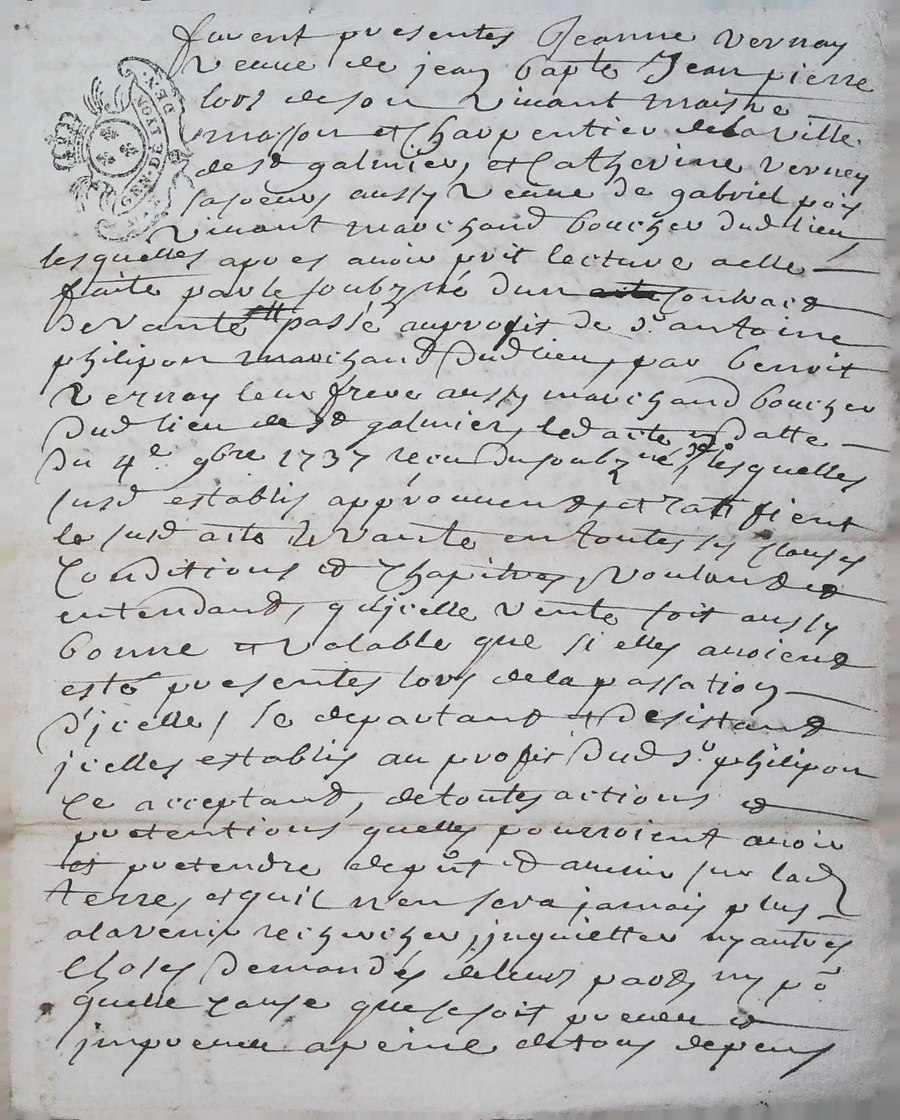 GEN. DE LYON
furent presentes Jeanne Vernay
veuve de jean bapte Jean pierre
lors de son vivant maistre
masson et Charpentier de la ville
de st galmier, et Catherine verney
sa soeur aussy veuve de gabriel
vivant marchand boucher dud lieu
lesquelles apres avoir prit lecture a elle
faite par le soubzné dun contract
de vante passé au profit de sr antoine
philipon marchand dud lieu, par benoit
Vernay leur frere aussy marchand boucher
dud lieu de st galmier, led acte en datte
du 4e 9bre 1737 receu du soubzné, lesquelles
susd establis approuvent, et ratifient
le susd acte de vante en toutes ses clauses
Conditions et Chapitres, voulant et
entendant, qu'jcelle vente soit aussy
bonne et valable que si elles avoient
esté presentes lors de la passation
d'jcelle, se departant et desistant
jcelles establis au profit dud sr philipon
ce acceptant, de toutes actions et
pretentions quelles pourroient avoir
et pretendre depñt et avenir sur lad
terre, et quil n'en sera jamais plus
a lavenir rechercher, jnquietter ny autres
choses demandés de leurs parts, ny põ
quelle cause que se soit preveu et
jmpreveu a peine de tous depens